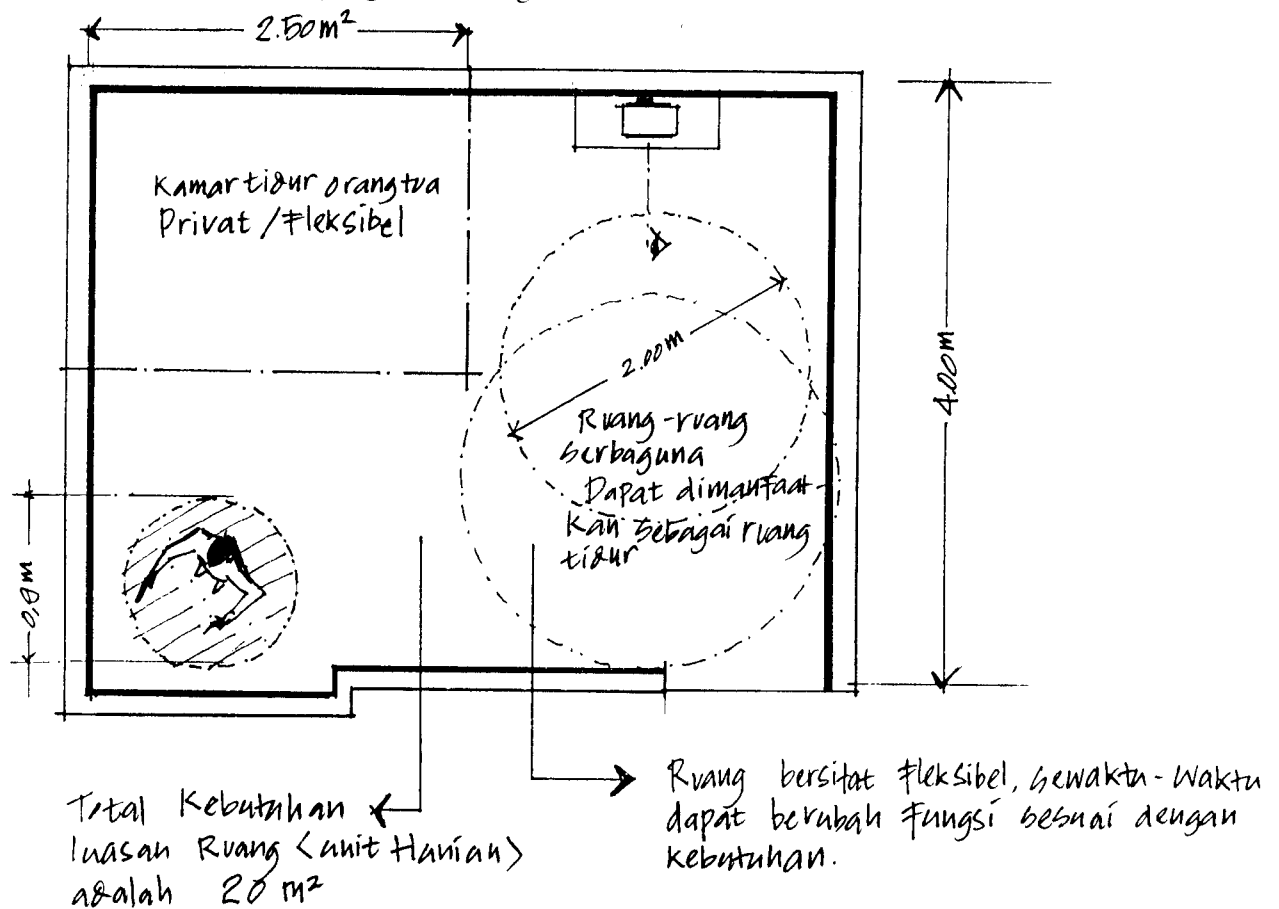 2.50 m²
Kamar tidur orang tua
Privat / Fleksibel
2.00 m
4.00 m
Ruang-ruang
serbaguna
Dapat dimanfaat-
kan sebagai ruang
tidur
Total Kebutuhan
luasan Ruang <unit Hunian>
adalah 20 m²
Ruang bersifat Fleksibel, sewaktu-waktu
dapat berubah Fungsi sesuai dengan
kebutuhan.